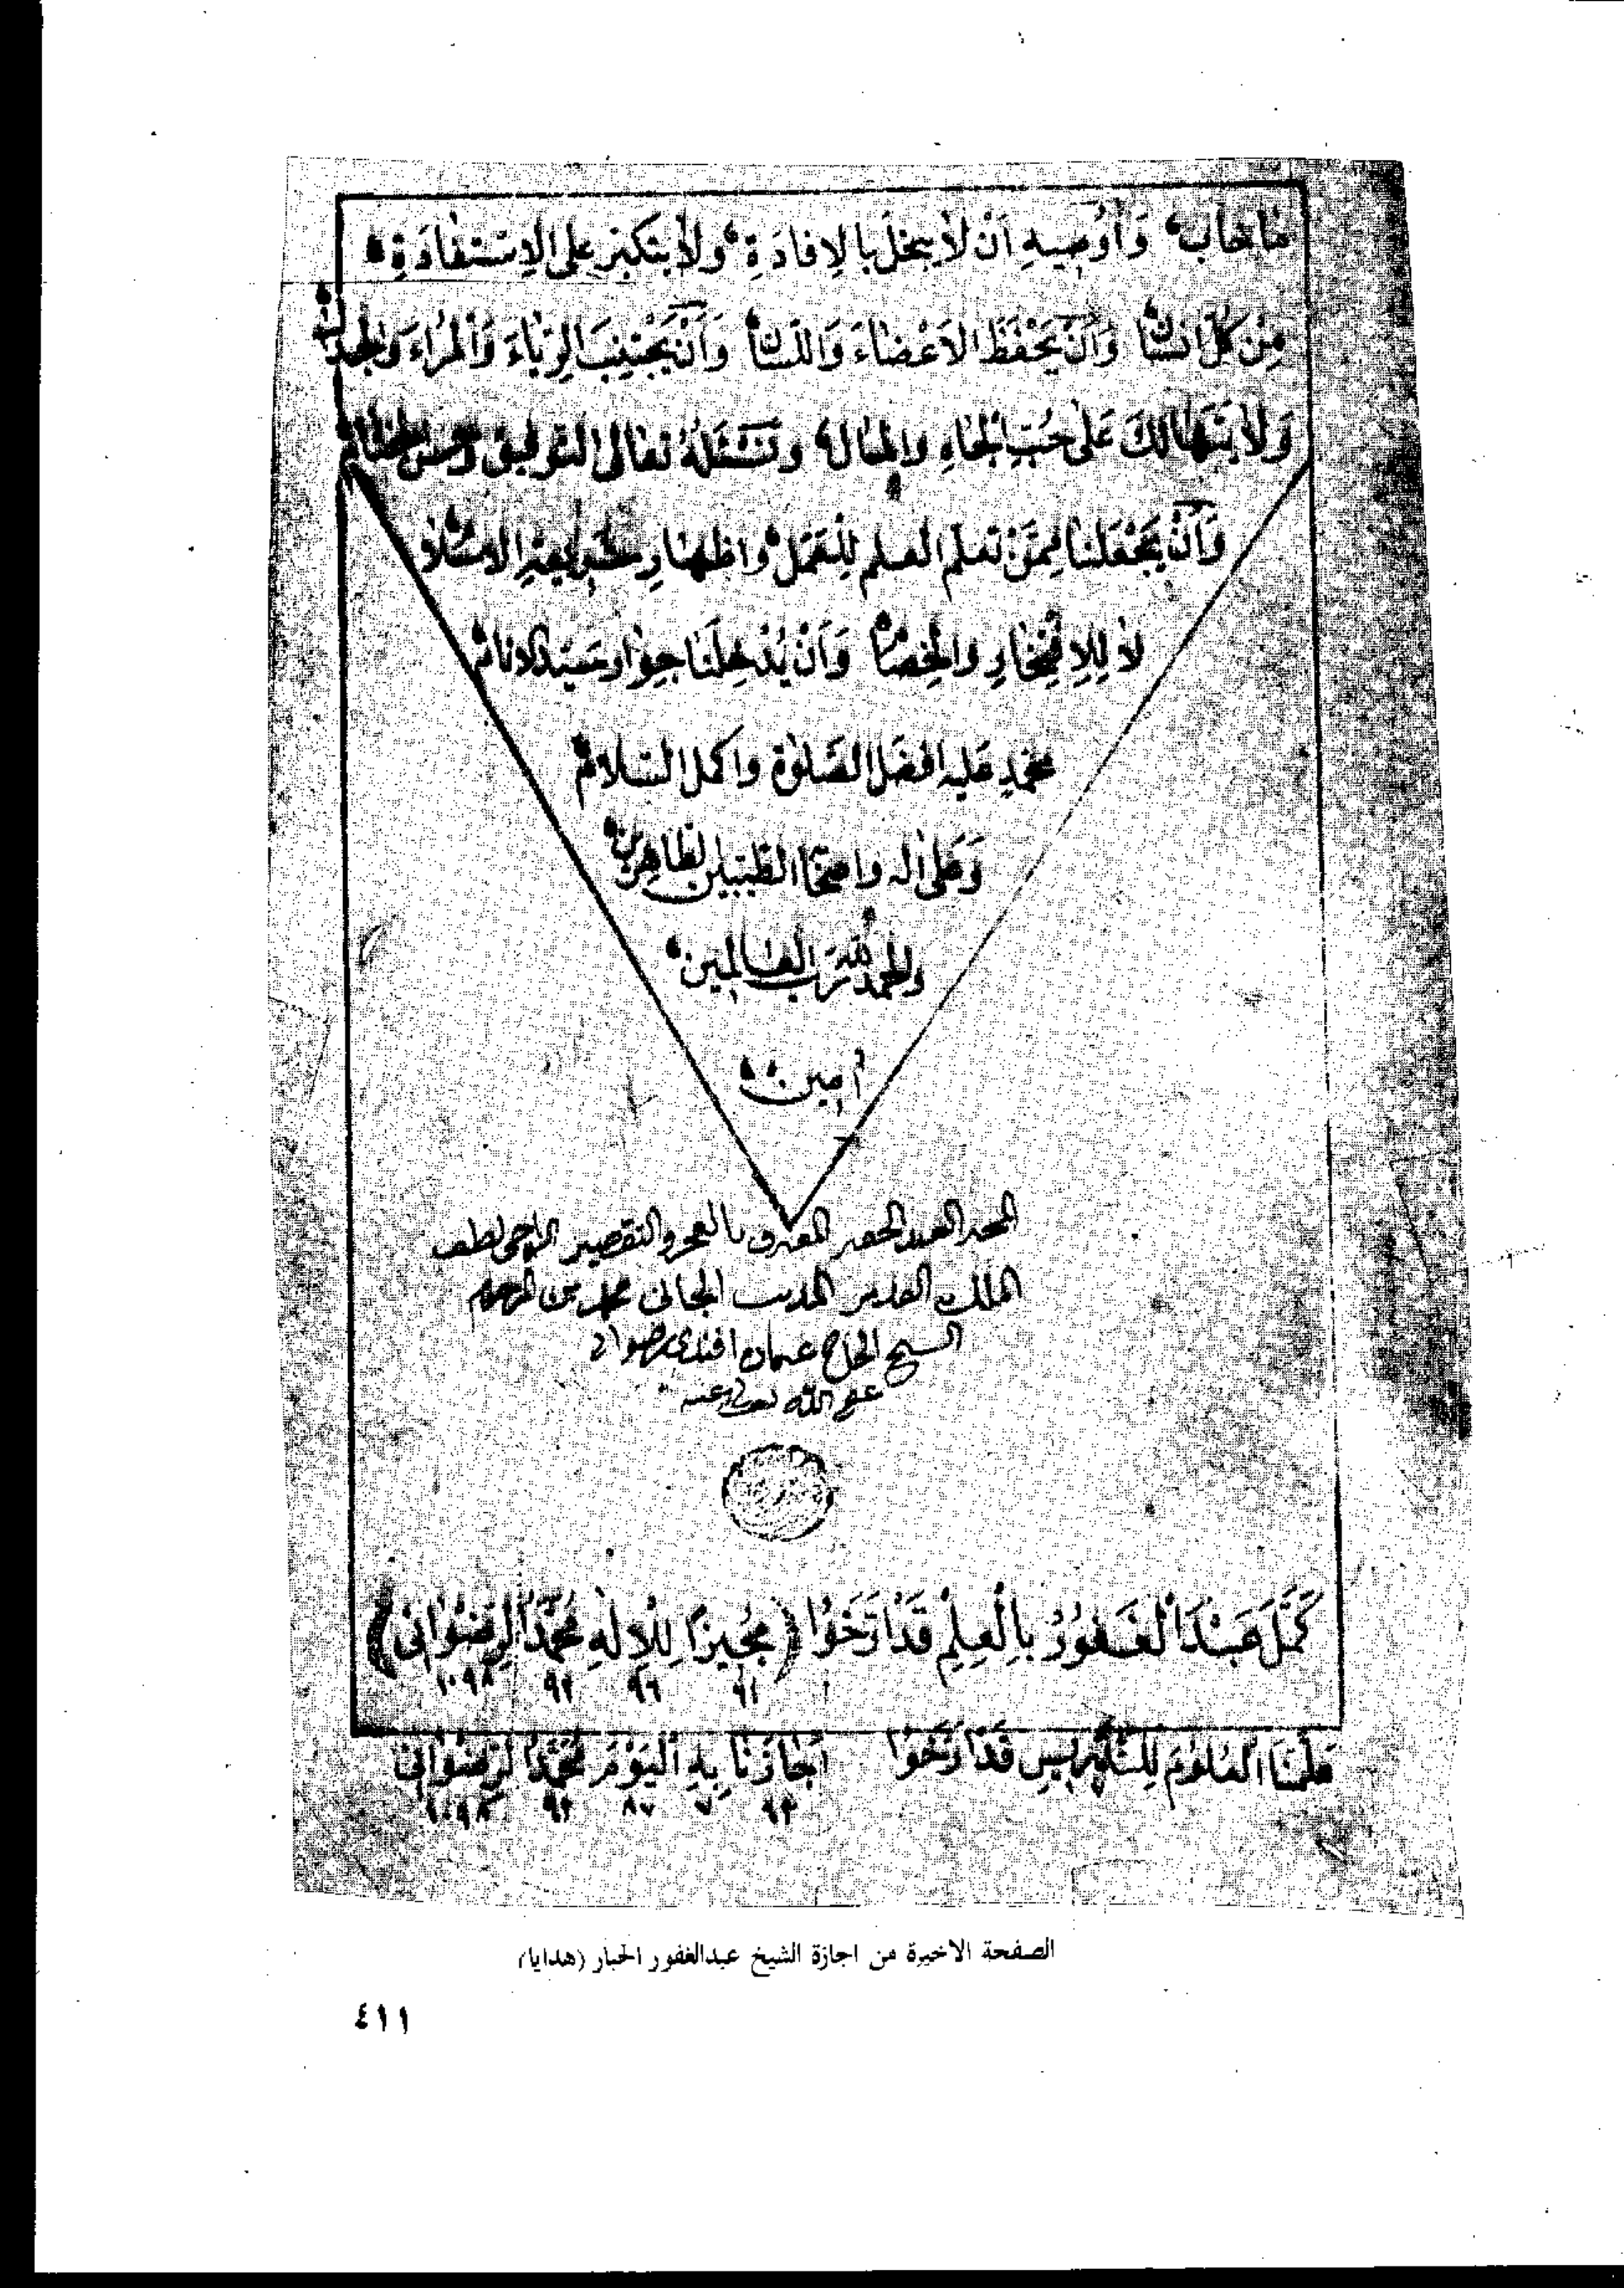 ماخاب وَأُوصِيهِ اَنْ لاَ يبخلَ بالاِفادَةِ ولاَ يتكبر على الاِستفادَةِ
مِنْ كلِّ انسان وَاَنْ يَحْفَظَ الاَعْضَاءَ وَاللسان وَاَنْ يَجْتَنِبَ الرِيَاءَ وَالْمِرَاءَ وَالجدال
وَلاَ يَتَهَالَكَ عَلى حُبِّ الجاهِ والمال وَنَسْئَلُهُ تعَالى التوفيق وحسن الختام
وَاَنْ يَجْعَلَنَا مِمَّنْ تعلم العلم لِلْعَمَلِ واظهارِ الاسلام
لاَ لِلاِفْتِخَارِ وَالْخِصَام وَاَنْ يُدْخِلَنَا جِوَارَ سَيِّدِ الانام
محمدٍ عَليه افضَل الصَّلوٰة واكمل السلام
وَعَلى اله واصحابه الطيبين الطاهرين
والحمد لله رَب العالمين
آمين
العبد الحقير المعترف بالعجز والتقصير الراجي لطف
الملك القدير المذنب الجاني محمد بن المرحوم
الشيخ الحاج عثمان افندي رضواني
عفى الله تعالى عنه
كَمَّلَ عَبْدَ الْغَفُورِ بِالْعِلِمِ قَدْ اَرَّخُوا (مُجِيزًا لِلْاِلٰهِ مُحَمَّدُ الرِضْوَانِي)
٦١ ٩٦ ٩٢ ١٠٩٨
عَلَّمَنَا الْعُلُومَ لِلتَّدْرِيسِ قَدْ اَرَّخُوا اَجَازَنَا بِهِ الْيَوْمَ مُحَمَّدُ الرِضْوَانِي
٦٣ ٧ ٨٧ ٩٢ ١٠٩٨
الصفحة الاخيرة من اجازة الشيخ عبدالغفور الحبار (هدايا)
٤١١